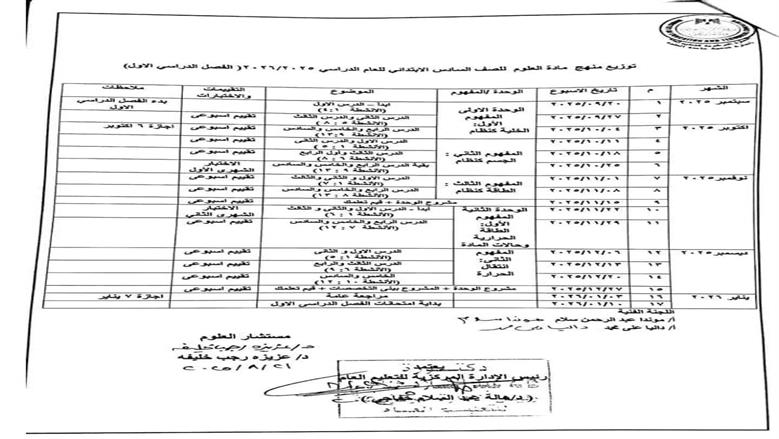 توزيع منهج مادة العلوم للصف السادس الابتدائي للعام الدراسي ٢٠٢٦/٢٠٢٥ (الفصل الدراسي الاول)
الشهر م تاريخ الاسبوع الوحدة/المفهوم الموضوع التقييمات والاختبارات ملاحظات
سبتمبر ٢٠٢٥ ١ ٢٠٢٥/٠٩/٢٠ الوحدة الاولى المفهوم الاول: الخلية كنظام ابدأ – الدرس الاول (الأنشطة ١:٤) بدء الفصل الدراسي الاول
٢ ٢٠٢٥/٠٩/٢٧ الدرس الثاني والدرس الثالث (الأنشطة ٥:٨) تقييم اسبوعى
اكتوبر ٢٠٢٥ ٣ ٢٠٢٥/١٠/٠٤ الدرس الرابع والخامس والسادس (الأنشطة ٩:١٣) تقييم اسبوعى اجازة ٦ اكتوبر
٤ ٢٠٢٥/١٠/١١ المفهوم الثاني: الجسم كنظام الدرس الاول والدرس الثاني (الأنشطة ١:٥) تقييم اسبوعى
٥ ٢٠٢٥/١٠/١٨ الدرس الثالث واول الرابع (الأنشطة ٦:٨) تقييم اسبوعى
٦ ٢٠٢٥/١٠/٢٥ بقية الدرس الرابع والخامس والسادس (الأنشطة ٩:١٣) الاختبار الشهرى الأول
نوفمبر ٢٠٢٥ ٧ ٢٠٢٥/١١/٠١ المفهوم الثالث: الطاقة كنظام الدرس الاول و الثاني والثالث (الأنشطة ١:٧) تقييم اسبوعى
٨ ٢٠٢٥/١١/٠٨ الدرس الرابع والخامس والسادس (الأنشطة ٨:١٣) تقييم اسبوعى
٩ ٢٠٢٥/١١/١٥ مشروع الوحدة + قيم تعلمك تقييم اسبوعى
١٠ ٢٠٢٥/١١/٢٢ الوحدة الثانية المفهوم الاول: الطاقة الحرارية وحالات المادة ابدأ – الدرس الاول والثاني و الثالث (الأنشطة ١:٦) الاختبار الشهرى الثاني
١١ ٢٠٢٥/١١/٢٩ الدرس الرابع والخامس والسادس (الأنشطة ٧:١٢) تقييم اسبوعى
ديسمبر ٢٠٢٥ ١٢ ٢٠٢٥/١٢/٠٦ المفهوم الثاني: انتقال الحرارة الدرس الاول و الثاني (الأنشطة ١:٥) تقييم اسبوعى
١٣ ٢٠٢٥/١٢/١٣ الدرس الثالث والرابع (الأنشطة ٦:٩) تقييم اسبوعى
١٤ ٢٠٢٥/١٢/٢٠ الخامس والسادس (الأنشطة ١٠:١٢) تقييم اسبوعى
١٥ ٢٠٢٥/١٢/٢٧ مشروع الوحدة + المشروع بينى التخصصات + قيم تعلمك تقييم اسبوعى
يناير ٢٠٢٦ ١٦ ٢٠٢٦/٠١/٠٣ مراجعة عامة اجازة ٧ يناير
١٧ ٢٠٢٦/٠١/١٠ بداية امتحانات الفصل الدراسي الاول
اللجنة الفنية
أ/ موندا عبد الرحمن سلام
أ/ داليا على محمد
مستشار العلوم
د/ عزيزه رجب خليفه
د/ عزيزه رجب خليفه
٢٠٢٥/٨/٢١
يعتمد
رئيس الإدارة المركزية للتعليم العام